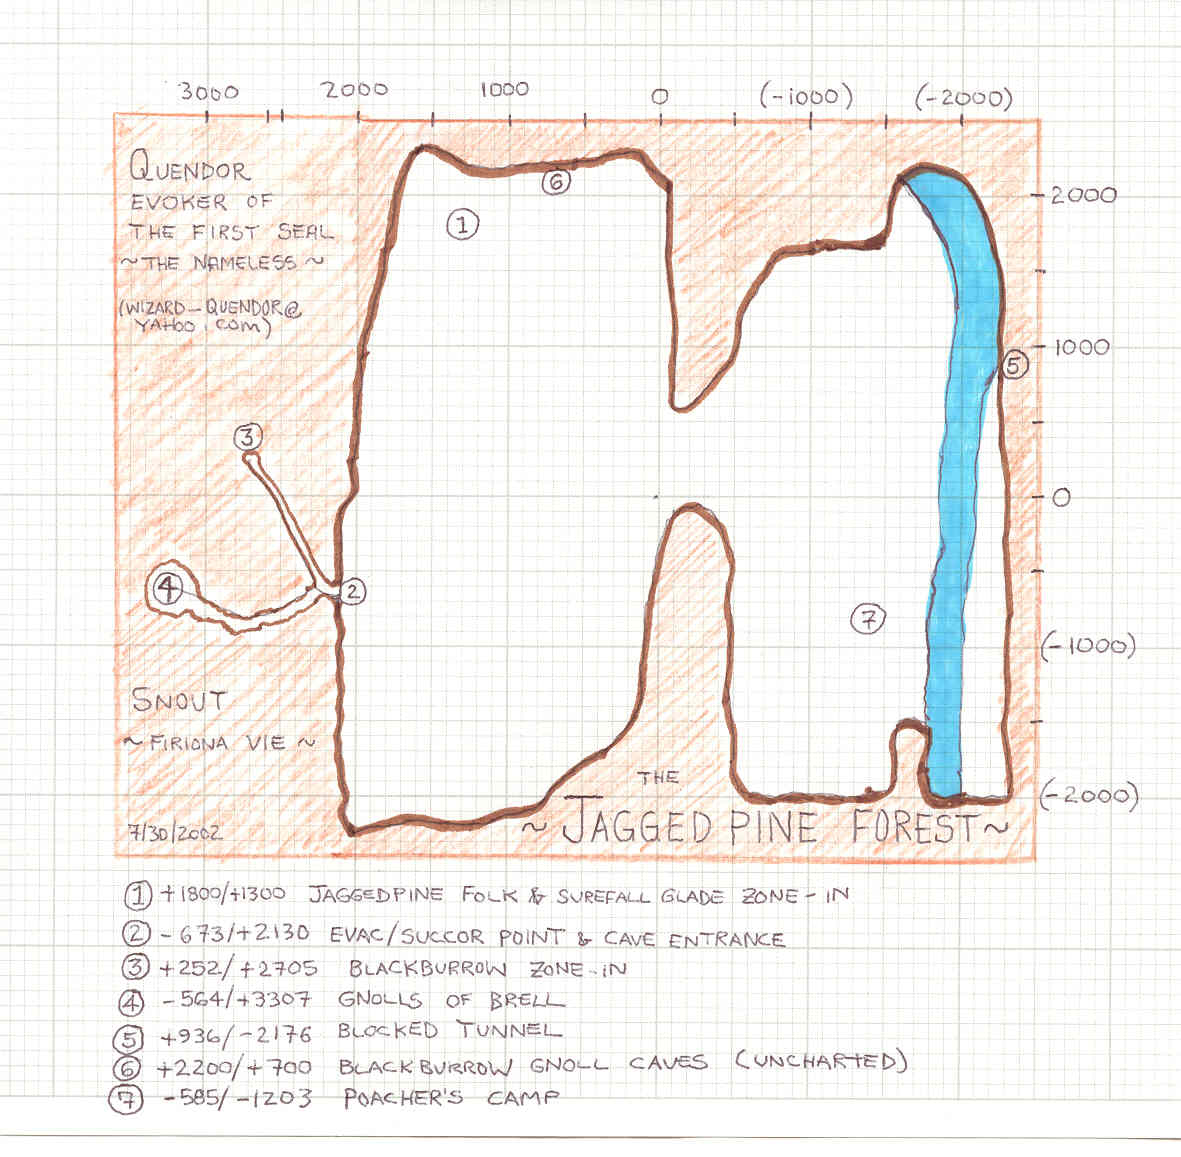 3000 2000 1000 0 (-1000) (-2000)
QUENDOR
EVOKER OF
THE FIRST SEAL
~THE NAMELESS~
(WIZARD_QUENDOR@
YAHOO.COM)
2000
1000
0
(-1000)
(-2000)
1
2
3
4
5
6
7
SNOUT
~FIRIONA VIE~
7/30/2002
THE
~JAGGED PINE FOREST~
1 +1800/+1300 JAGGEDPINE FOLK & SUREFALL GLADE ZONE-IN
2 -673/+2130 EVAC/SUCCOR POINT & CAVE ENTRANCE
3 +252/+2705 BLACKBURROW ZONE-IN
4 -564/+3307 GNOLLS OF BRELL
5 +936/-2176 BLOCKED TUNNEL
6 +2200/+700 BLACKBURROW GNOLL CAVES (UNCHARTED)
7 -585/-1203 POACHER'S CAMP